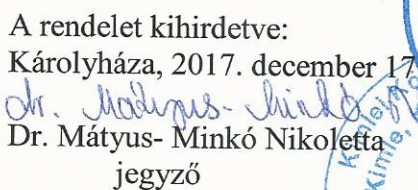 A rendelet kihirdetve:
Károlyháza, 2017. december 17
dr. Mátyus-Minkó
Dr. Mátyus- Minkó Nikoletta
jegyző